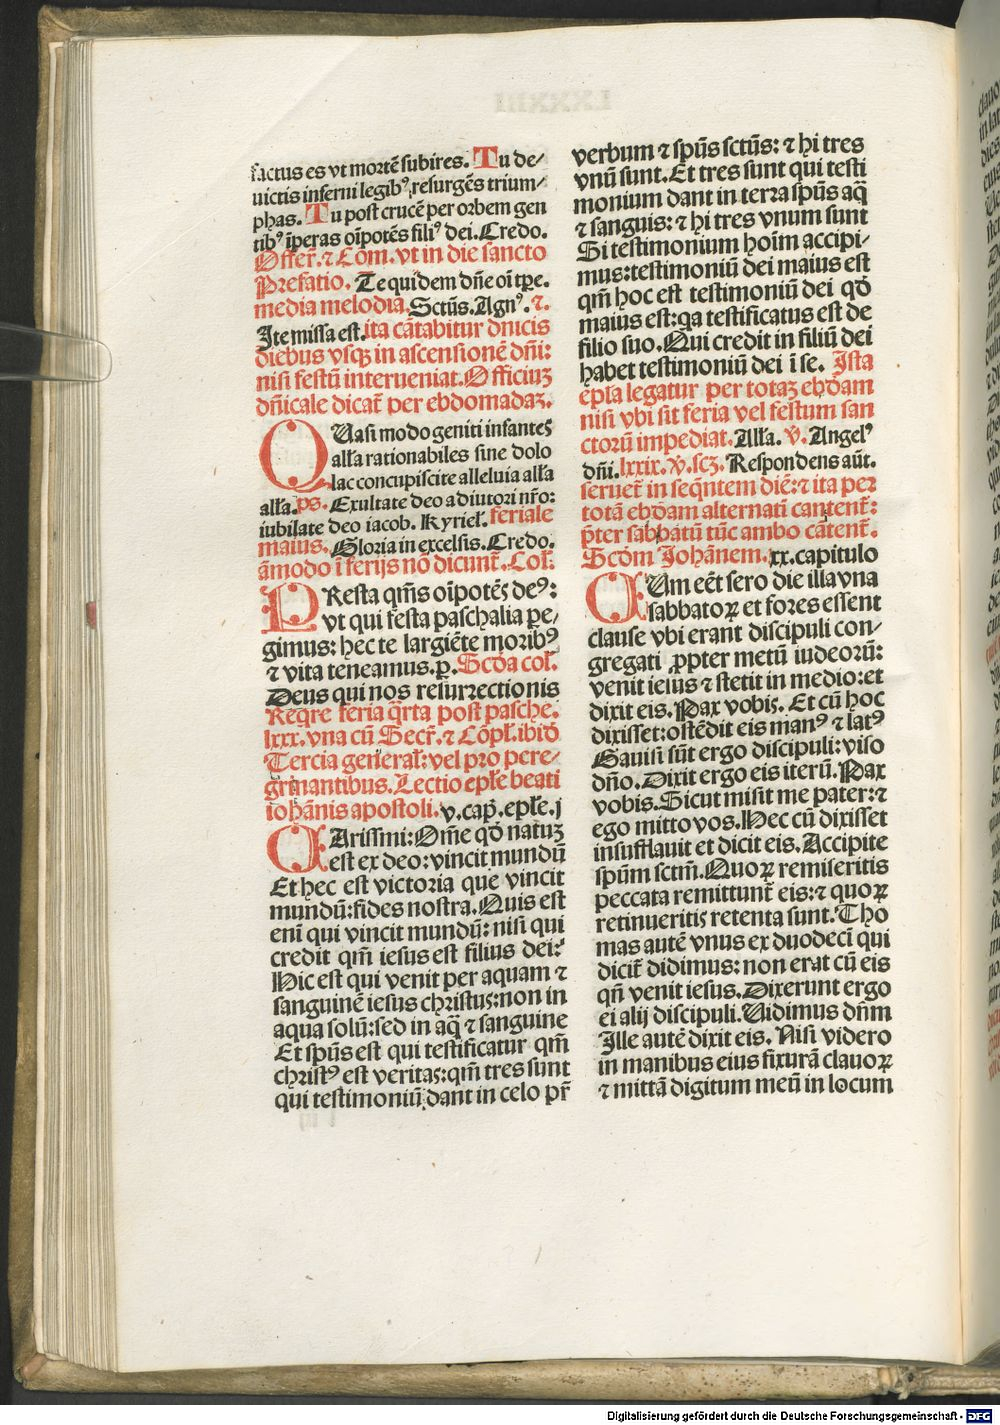 factus es vt mortē subires. Tu de/
uictis inferni legibꝰ, resurgēs trium/
phas. Tu post crucē per orbem gen
tibꝰ īperas oīpotēs filiꝰ dei. Credo.
Offer̄. ⁊ Cōm. vt in die sancto
Prefatio. Te quidem dn̄e oī tp̄e.
media melodia. Sctūs. Agnꝰ. ⁊.
Ite missa est. ita cātabitur dnicis
diebus vsqꝫ in ascensionē dn̄i:
nisi festū interueniat. Officiuꝫ
dn̄icale dicat̄ per ebdomadaꝫ.
QUasi modo geniti infantes
all'a rationabiles sine dolo
lac concupiscite alleluia all'a
all'a. ps. Exultate deo adiutori nr̄o:
iubilate deo iacob. Kyriel'. feriale
maius. Gloria in excelsis. Credo.
āmodo ī ferijs nō dicunt̄. Col'.
PResta qm̄s oīpotēs deꝰ:
vt qui festa paschalia pe/
gimus: hec te largiēte moribꝰ
⁊ vita teneamus. p̱. Scda col'.
Deus qui nos resurrectionis
Reqre feria qrta post pasche.
lxxx. vna cū Secr̄. ⁊ Cōpl'. ibid
Tercia general': vel pro pere/
grinantibus. Lectio epl'e beati
iohānis apostoli. v. cap̄. epl'e. j
CArissmi: Om̄e qd natuꝫ
est ex deo: vincit mundū
Et hec est victoria que vincit
mundū: fides nostra. Quis est
eni qui vincit mundū: nisi qui
credit qm̄ iesus est filius dei:
Hic est qui venit per aquam ⁊
sanguinē iesus christus: non in
aqua solū: sed in aq̄ ⁊ sanguine
Et spūs est qui testificatur qm̄
christꝰ est veritas: qm̄ tres sunt
qui testimoniū dant in celo pr̄
verbum ⁊ spūs sctūs: ⁊ hi tres
vnū sunt. Et tres sunt qui testi
monium dant in terra spūs aq̄
⁊ sanguis: ⁊ hi tres vnum sunt
Si testimonium hoīm accipi/
mus: testimoniū dei maius est
qm̄ hoc est testimoniū dei qd
maius est: qa testificatus est de
filio suo. Qui credit in filiū dei
habet testimoniū dei ī se. Ista
epl'a legatur per totaꝫ ebdam
nisi vbi sit feria vel festum san
ctorū impediat. All'a. ꝟ. Angelꝰ
dn̄i. lxxix. ꝟ. scꝫ. Respondens aūt.
seruet̄ in seqn̄tem diē: ⁊ ita per
totā ebdam alternatī cantent̄:
p̄ter sabbatū tūc ambo cātent̄.
Scdm Johānem. xx. capitulo
CUm eēt sero die illa vna
sabbatoꝝ et fores essent
clause vbi erant discipuli con/
gregati ꝓpter metū iudeorū:
venit iesus ⁊ stetit in medio: et
dixit eis. Pax vobis. Et cū hoc
dixisset: ostēdit eis manꝰ ⁊ latꝰ
Gauisi sūt ergo discipuli: viso
dn̄o. Dixit ergo eis iterū. Pax
vobis. Sicut misit me pater: ⁊
ego mitto vos. Hec cū dixisset
insufflauit et dicit eis. Accipite
spūm sctm̄. Quoꝝ remiseritis
peccata remittunt̄ eis: ⁊ quoꝝ
retinueritis retenta sunt. Tho
mas autē vnus ex duodecī qui
dicit̄ didimus: non erat cū eis
qn̄ venit iesus. Dixerunt ergo
ei alij discipuli. Uidimus dn̄m
Ille autē dixit eis. Nisi videro
in manibus eius fixurā clauoꝝ
⁊ mittā digitum meū in locum
Digitalisierung gefördert durch die Deutsche Forschungsgemeinschaft - DFG